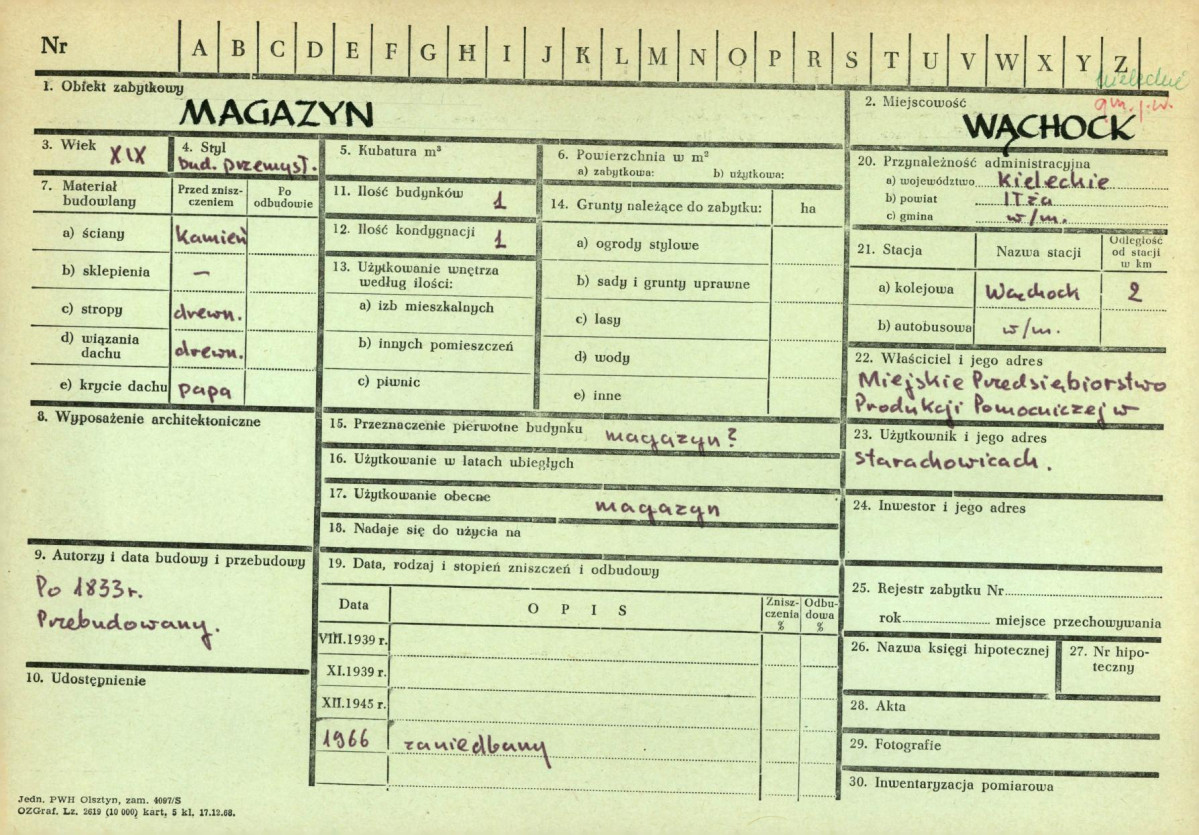 Nr A B C D E F G H I J K L M N O P R S T U V W X Y Z
1. Obiekt zabytkowy
MAGAZYN
2. Miejscowość
gm. j.w.
WĄCHOCK
3. Wiek XIX
4. Styl
bud. przemysł.
5. Kubatura m³
6. Powierzchnia w m²
a) zabytkowa: b) użytkowa:
20. Przynależność administracyjna
a) województwo Kieleckie
b) powiat Iłża
c) gmina w/m.
7. Materiał
budowlany
Przed znisz-
czeniem
Po
odbudowie
a) ściany kamień
b) sklepienia —
c) stropy drewn.
d) wiązania
dachu drewn.
e) krycie dachu papa
11. Ilość budynków 1
12. Ilość kondygnacji 1
13. Użytkowanie wnętrza
według ilości:
a) izb mieszkalnych
b) innych pomieszczeń
c) piwnic
14. Grunty należące do zabytku: ha
a) ogrody stylowe
b) sady i grunty uprawne
c) lasy
d) wody
e) inne
21. Stacja
Nazwa stacji
Odległość
od stacji
w km
a) kolejowa Wąchock 2
b) autobusowa w/m.
22. Właściciel i jego adres
Miejskie Przedsiębiorstwo
Produkcji Pomocniczej w
23. Użytkownik i jego adres
Starachowicach.
8. Wyposażenie architektoniczne
15. Przeznaczenie pierwotne budynku magazyn?
16. Użytkowanie w latach ubiegłych
17. Użytkowanie obecne magazyn
18. Nadaje się do użycia na
24. Inwestor i jego adres
9. Autorzy i data budowy i przebudowy
Po 1833 r.
Przebudowany.
10. Udostępnienie
19. Data, rodzaj i stopień zniszczeń i odbudowy
Data
OPIS
Znisz-
czenia
%
Odbu-
dowa
%
VIII.1939 r.
XI.1939 r.
XII.1945 r.
1966 zaniedbany
25. Rejestr zabytku Nr
rok miejsce przechowywania
26. Nazwa księgi hipotecznej
27. Nr hipo-
teczny
28. Akta
29. Fotografie
30. Inwentaryzacja pomiarowa
Jedn. PWH Olsztyn, zam. 4097/S
OZGraf. Lz. 2619 (10 000) kart, 5 kl, 17.12.68.